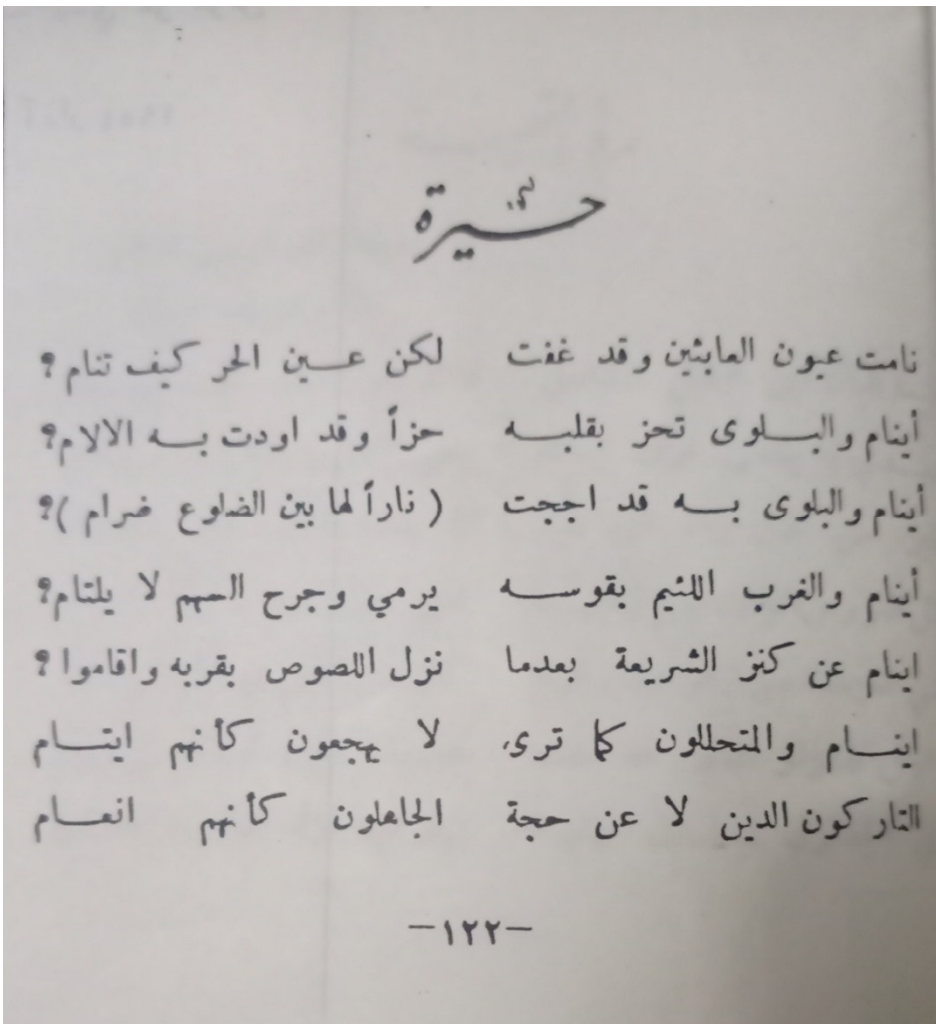 حيرة
نامت عيون العابثين وقد غفت لكن عين الحر كيف تنام ؟
أينام والبلوى تحز بقلبه حزاً وقد اودت به الالام؟
أينام والبلوى به قد اججت ( ناراً لها بين الضلوع ضرام )؟
أينام والغرب اللئيم بقوسه يرمي وجرح السهم لا يلتام؟
اينام عن كنز الشريعة بعدما نزل اللصوص بقربه واقاموا ؟
اينام والمتحللون كما ترى لا يهجعون كأنهم ايتام
التاركون الدين لا عن حجة الجاهلون كأنهم انعام
-١٢٢-